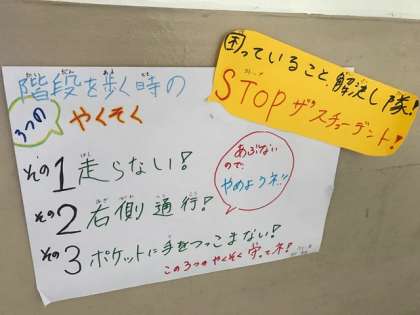 困っていること、解決し隊!
STOP ザ スチューデント!
階段を歩く時の
3つの やくそく
その1 走らない!
その2 右側通行!
その3 ポケットに手をつっこまない!
あぶない
ので、
やめようネ!!
この3つのやくそく 守ってネ!